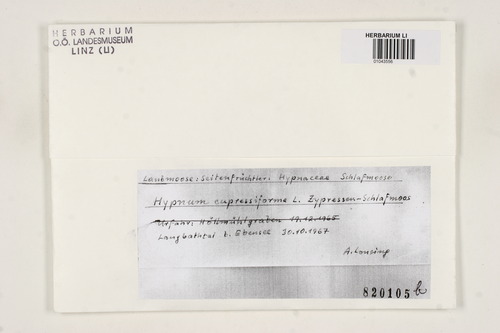 HERBARIUM
O.Ö. LANDESMUSEUM
LINZ (LI)
HERBARIUM LI
Laubmoose: Seitenfrüchtler, Hypnaceae Schlafmoose
Hypnum cupressiforme L. Zypressen-Schlafmoos
Urfahr, Höllmühlgraben 19.12.1965
Langbathtal b. Ebensee 30.10.1967
A. Lonsing
820105 b